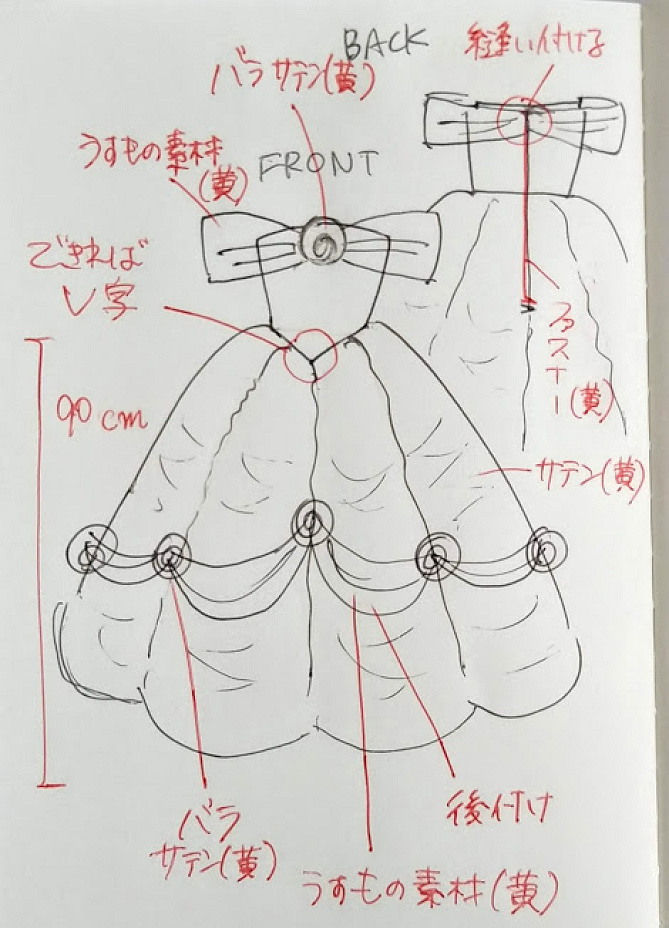 BACK
縫い付ける
バラ サテン(黄)
うすもの素材
(黄)
FRONT
できれば
V字
ファスナー(黄)
90cm
サテン(黄)
バラ
サテン(黄)
後付け
うすもの素材(黄)